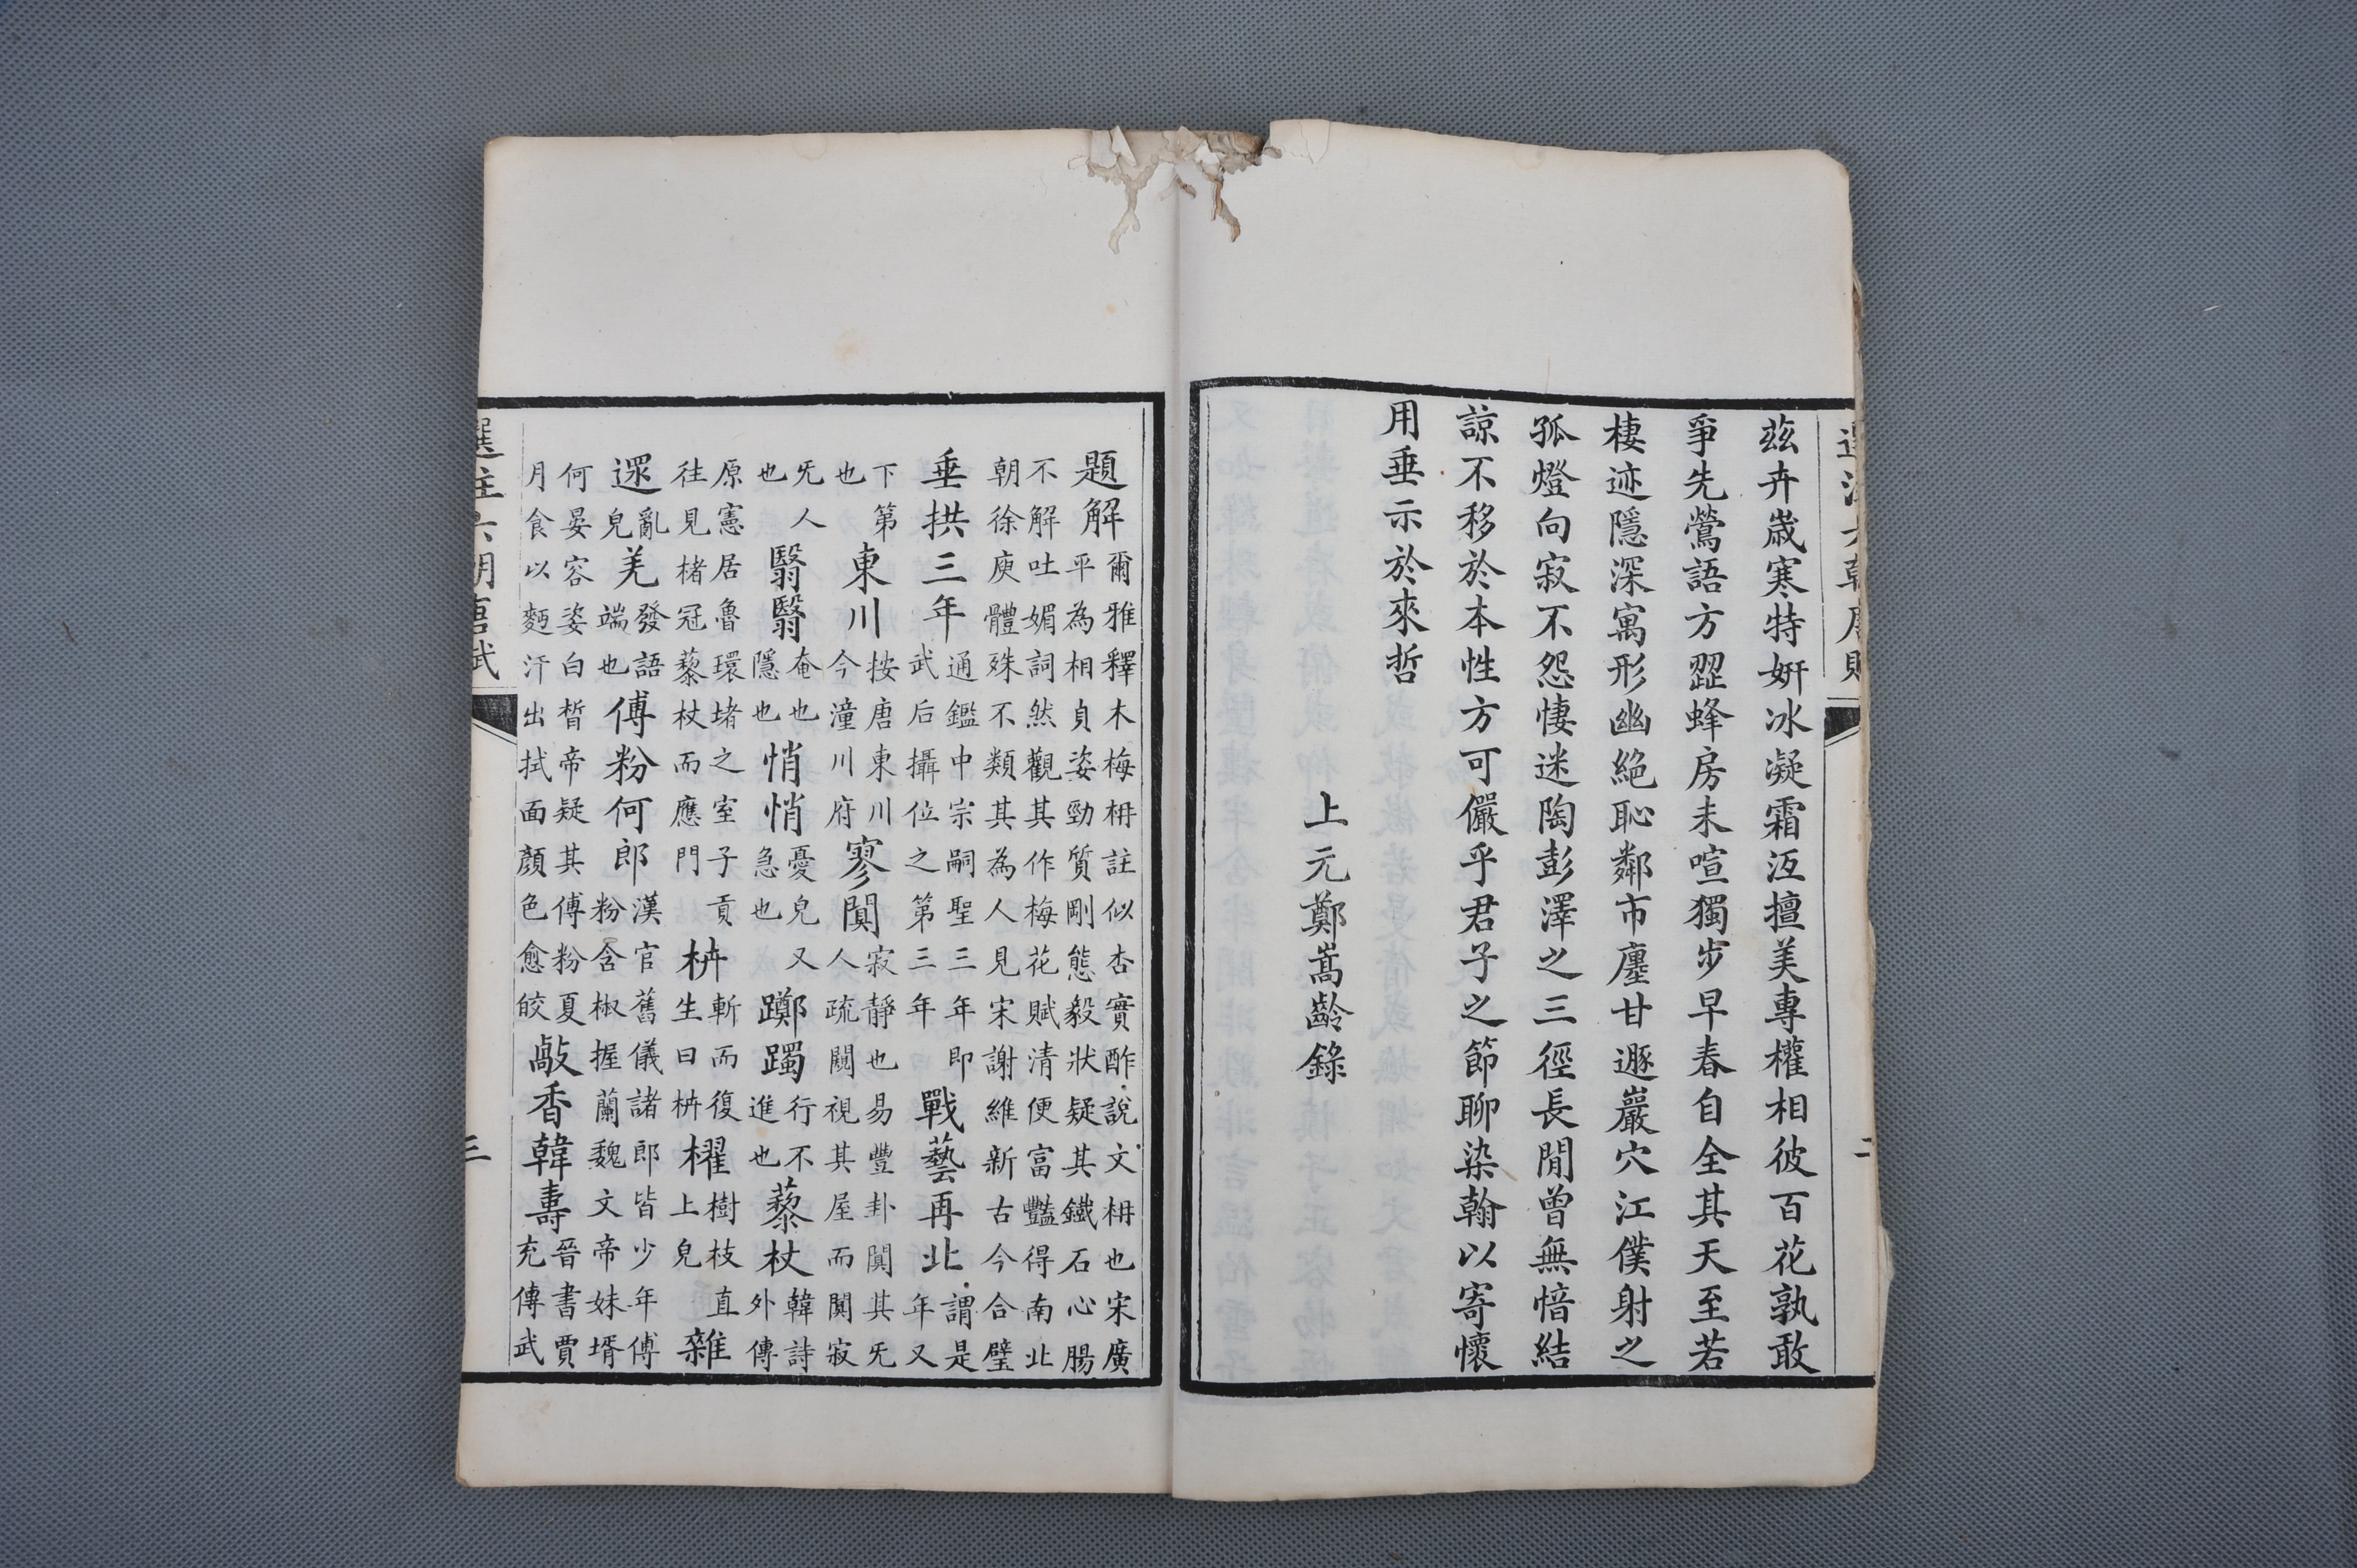 選注六朝唐賦
二
茲卉歲寒特妍冰凝霜沍擅美專權相彼百花孰敢
爭先鶯語方澀蜂房未喧獨步早春自全其天至若
棲迹隱深寓形幽絕恥鄰市廛甘遯巖穴江僕射之
孤燈向寂不怨悽迷陶彭澤之三徑長閒曾無愔結
諒不移於本性方可儷乎君子之節聊染翰以寄懷
用垂示於來哲
上元鄭嵩齡錄
題解爾雅釋木梅柟註似杏實酢說文柟也宋廣平為相貞姿勁質剛態毅狀疑其鐵石心腸
不解吐媚詞然觀其作梅花賦清便富豔得南北朝徐庾體殊不類其為人見宋謝維新古今合璧
垂拱三年通鑑中宗嗣聖三年即武后攝位之第三年戰藝再北謂是年又
下第也東川按唐東川今潼川府寥闃寂靜也易豐卦闃其旡人疏闚視其屋而闃寂
旡人也翳翳奄也隱也悄悄憂皃又急也躑躅行不進也藜杖韓詩外傳
原憲居魯環堵之室子貢往見楮冠藜杖而應門枿斬而復生曰枿櫂樹枝直上皃雜
遝亂皃羌發語端也傅粉何郎漢官舊儀諸郎皆少年傅粉含椒握蘭魏文帝妹壻
何晏容姿白皙帝疑其傅粉夏月食以麪汗出拭面顏色愈皎敲香韓壽晉書賈充傳武
選注六朝唐賦
三